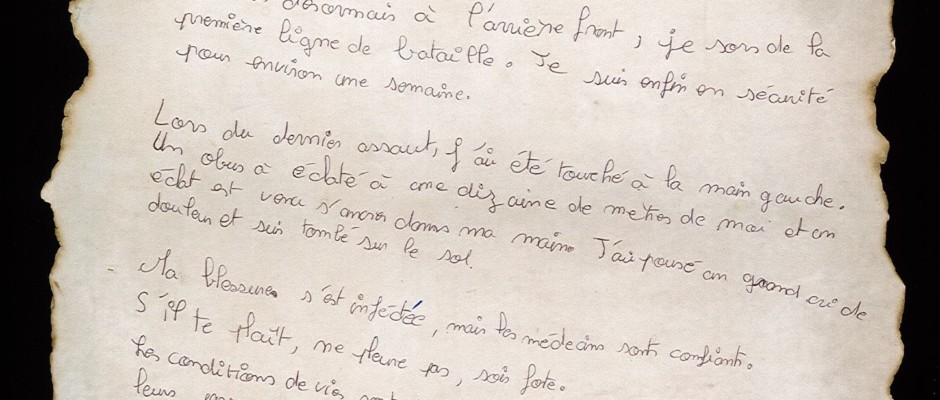 désormais à l'arrière front, je sors de la
première ligne de bataille. Je suis enfin en sécurité
pour environ une semaine.
Lors du dernier assaut, j'ai été touché à la main gauche.
Un obus à éclaté à une dizaine de mètres de moi et un
éclat est venu s'ancrer dans ma main. J'ai poussé un grand cri de
douleur et suis tombé sur le sol.
Ma blessure s'est infectée, mais les médecins sont confiants.
S'il te plaît, ne pleure pas, sois forte.
Les conditions de vie sont
leurs